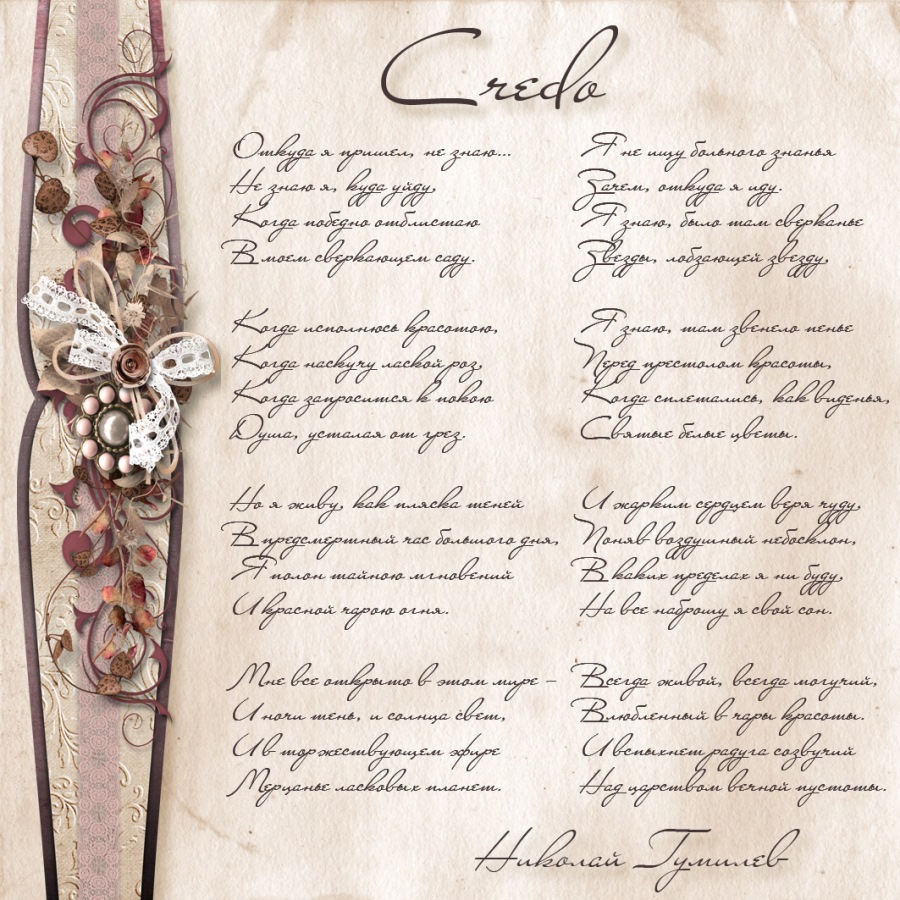 Credo
Откуда я пришел, не знаю...
Не знаю я, куда уйду,
Когда победно отблистаю
В моем сверкающем саду.
Когда исполнюсь красотою,
Когда наскучу лаской роз,
Когда запросится к покою
Душа, усталая от грез.
Но я живу, как пляска теней
В предсмертный час большого дня,
Я полон тайною мгновений
И красной чарою огня.
Мне все открыто в этом мире –
И ночи тень, и солнца свет,
И в торжествующем эфире
Мерцанье ласковых планет.
Я не ищу больного знанья
Зачем, откуда я иду.
Я знаю, было там сверканье
Звезды, лобзающей звезду,
Я знаю, там звенело пенье
Перед престолом красоты,
Когда сплетались, как виденья,
Святые белые цветы.
И жарким сердцем веря чуду,
Поняв воздушный небосклон,
В каких пределах я ни буду,
На все наброшу я свой сон.
Всегда живой, всегда могучий,
Влюбленный в чары красоты.
И вспыхнет радуга созвучий
Над царством вечной пустоты.
Николай Гумилев